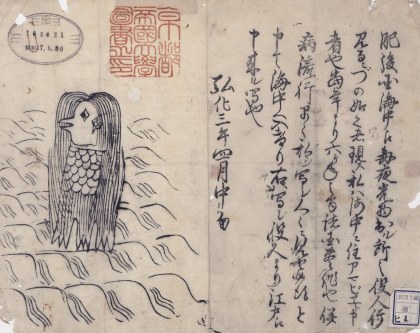 肥後国海中え毎夜光物出ル所之役人行
見るニづの如之者現ス私ハ海中ニ住アマビヱト申
者也當年より六ヶ年之間諸国豊作也併
病流行早々私ヲ写シ人々ニ見せ候得と
申て海中へ入けり右写シ役人より江戸え
申来ル写也
弘化三年四月中旬
京都
帝國大學
圖書之印